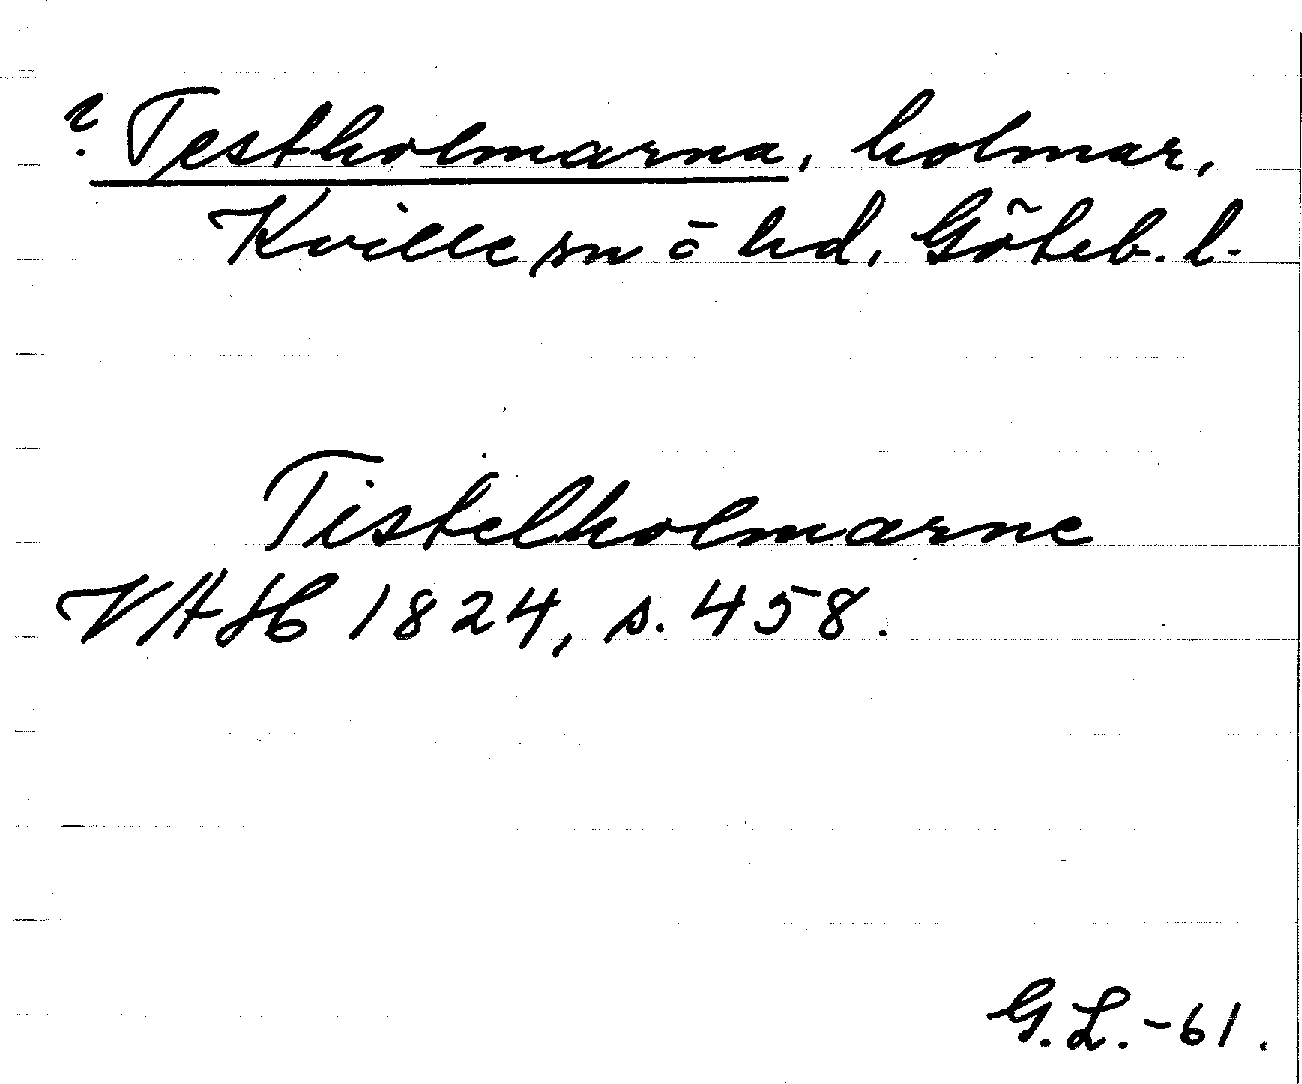 ? Testholmarna, holmar,
Kville sn o hd, Göteb. l.
Tistelholmarne
VAH 1824, s. 458.
G.L.-61.